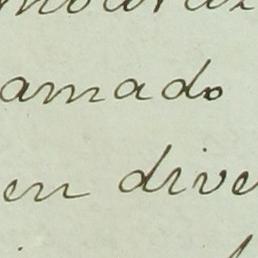 amado
en dive